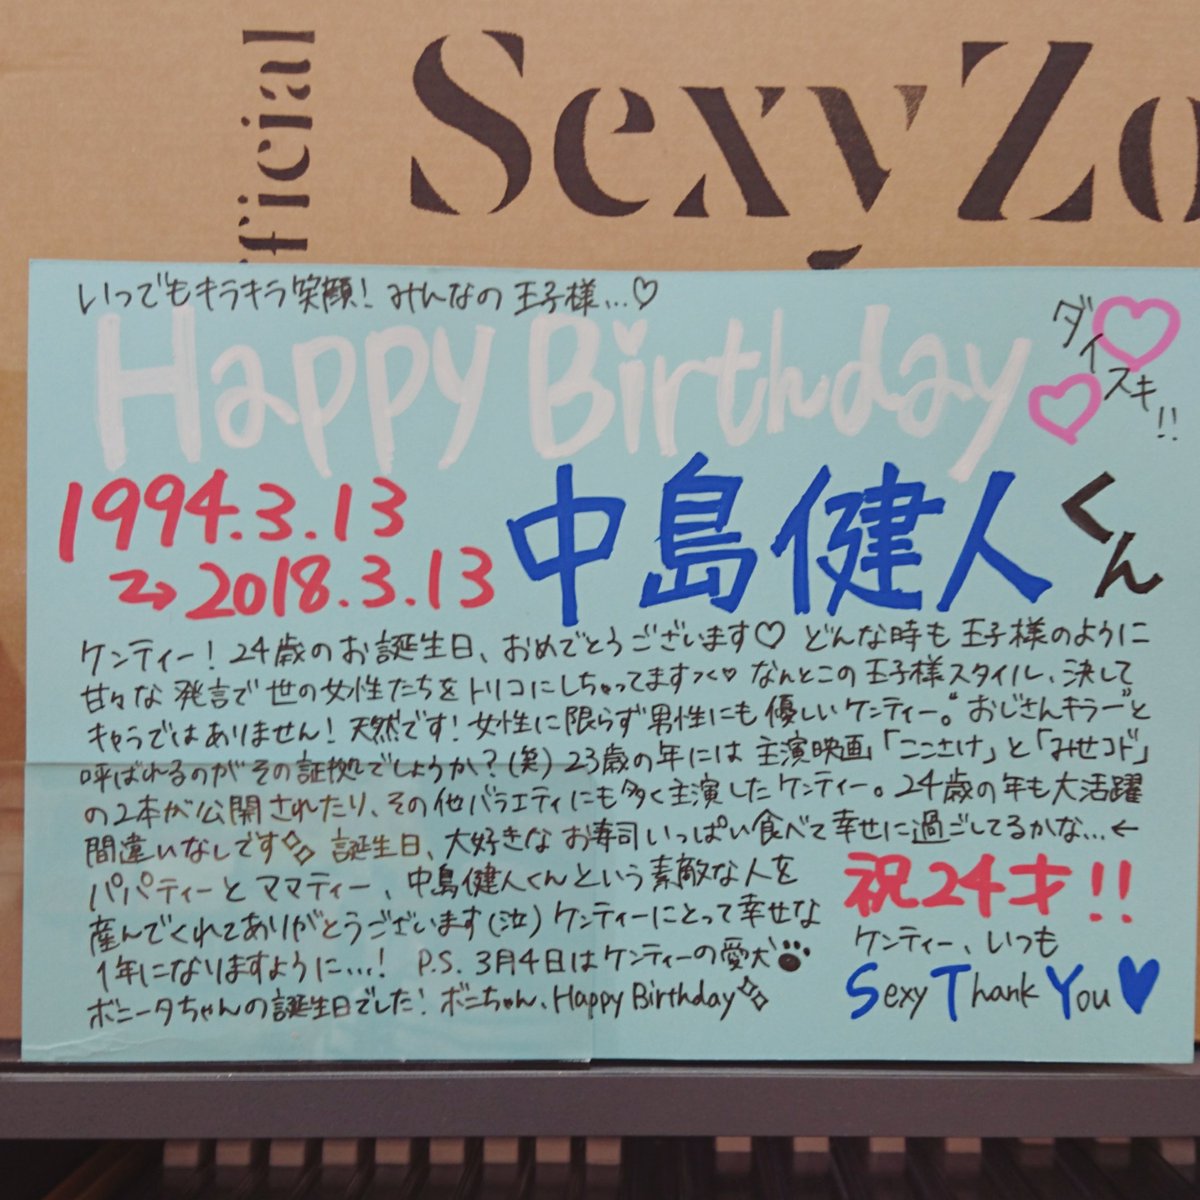 fficial
SexyZo
いつでもキラキラ笑顔！みんなの王子様...♡
Happy Birthday
ダイスキ!!
1994.3.13
→2018.3.13
中島健人くん
ケンティー！24歳のお誕生日、おめでとうございます♡ どんな時も王子様のように
甘々な発言で世の女性たちをトリコにしちゃってますっ♡ なんとこの王子様スタイル、決して
キャラではありません！天然です！女性に限らず男性にも優しいケンティー。"おじさんキラー"と
呼ばれるのがその証拠でしょうか？(笑) 23歳の年には主演映画「ここさけ」と「みせコド」
の2本が公開されたり、その他バラエティにも多く主演したケンティー。24歳の年も大活躍
間違いなしです 誕生日、大好きなお寿司いっぱい食べて幸せに過ごしてるかな...←
パパティーとママティー、中島健人くんという素敵な人を
産んでくれてありがとうございます(泣) ケンティーにとって幸せな
1年になりますように...！ P.S. 3月4日はケンティーの愛犬
ボニータちゃんの誕生日でした！ボニちゃん、Happy Birthday
祝24才!!
ケンティー、いつも
Sexy Thank You♥